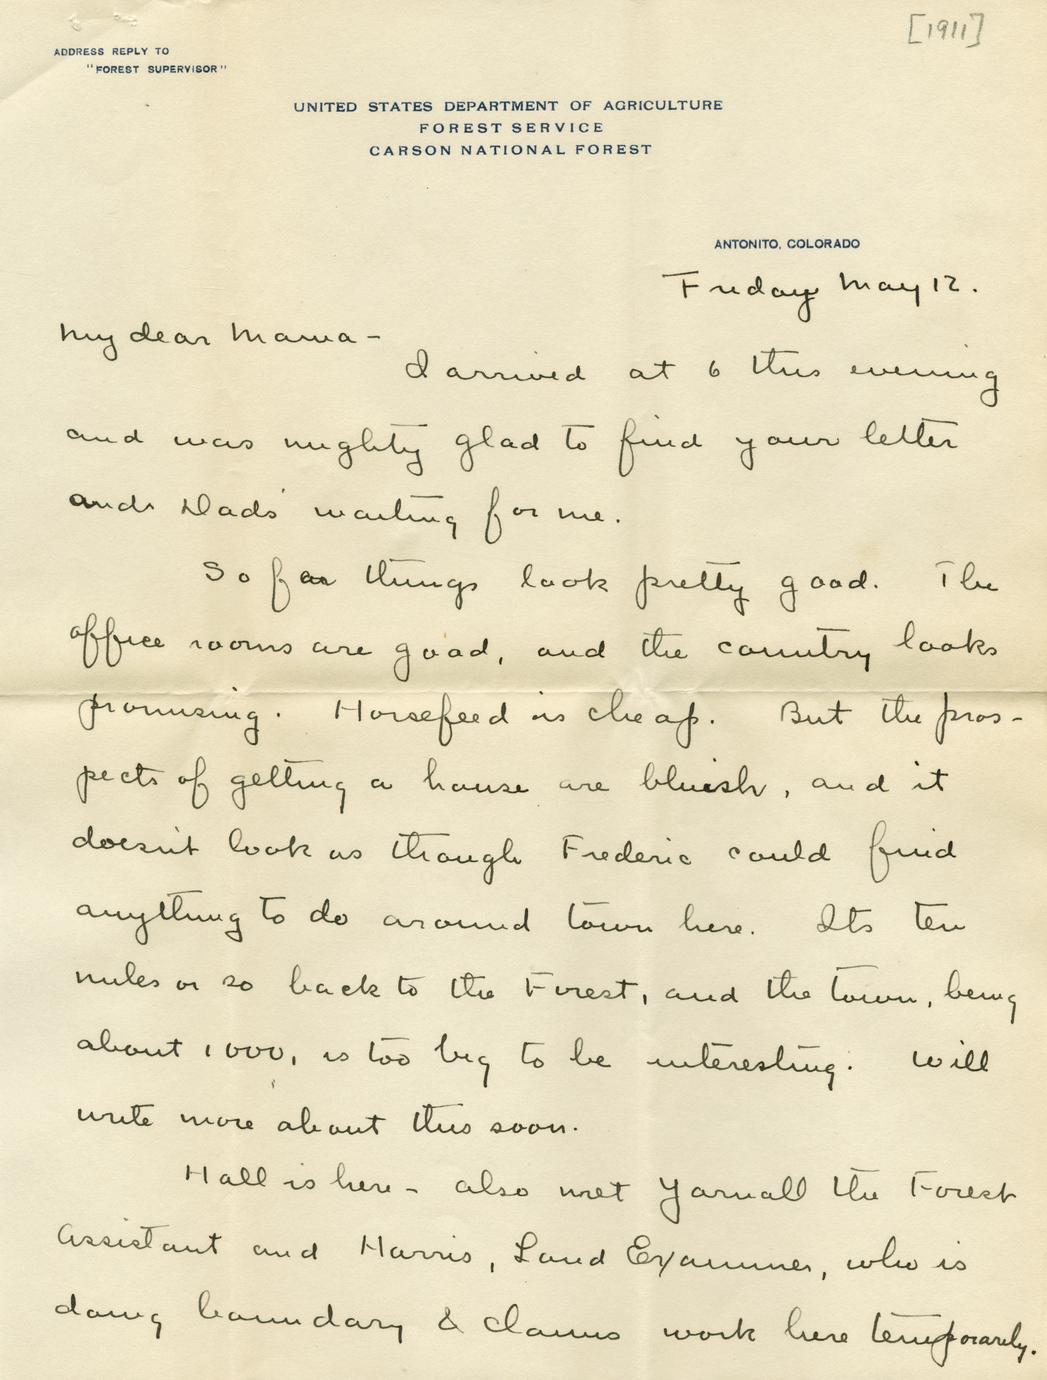 [1911]
ADDRESS REPLY TO
"FOREST SUPERVISOR"
UNITED STATES DEPARTMENT OF AGRICULTURE
FOREST SERVICE
CARSON NATIONAL FOREST
ANTONITO, COLORADO
Friday May 12.
My dear Mama -
I arrived at 6 this evening
and was mighty glad to find your letter
and Dads' waiting for me.
So far things look pretty good. The
office rooms are good, and the country looks
promising. Horsefeed is cheap. But the pros-
pects of getting a house are bluish, and it
doesn't look as though Frederic could find
anything to do around town here. Its ten
miles or so back to the Forest, and the town, being
about 1000, is too big to be interesting. Will
write more about this soon.
Hall is here - also met Yarnall the Forest
Assistant and Harris, Land Examiner, who is
doing boundary & claims work here temporarily.